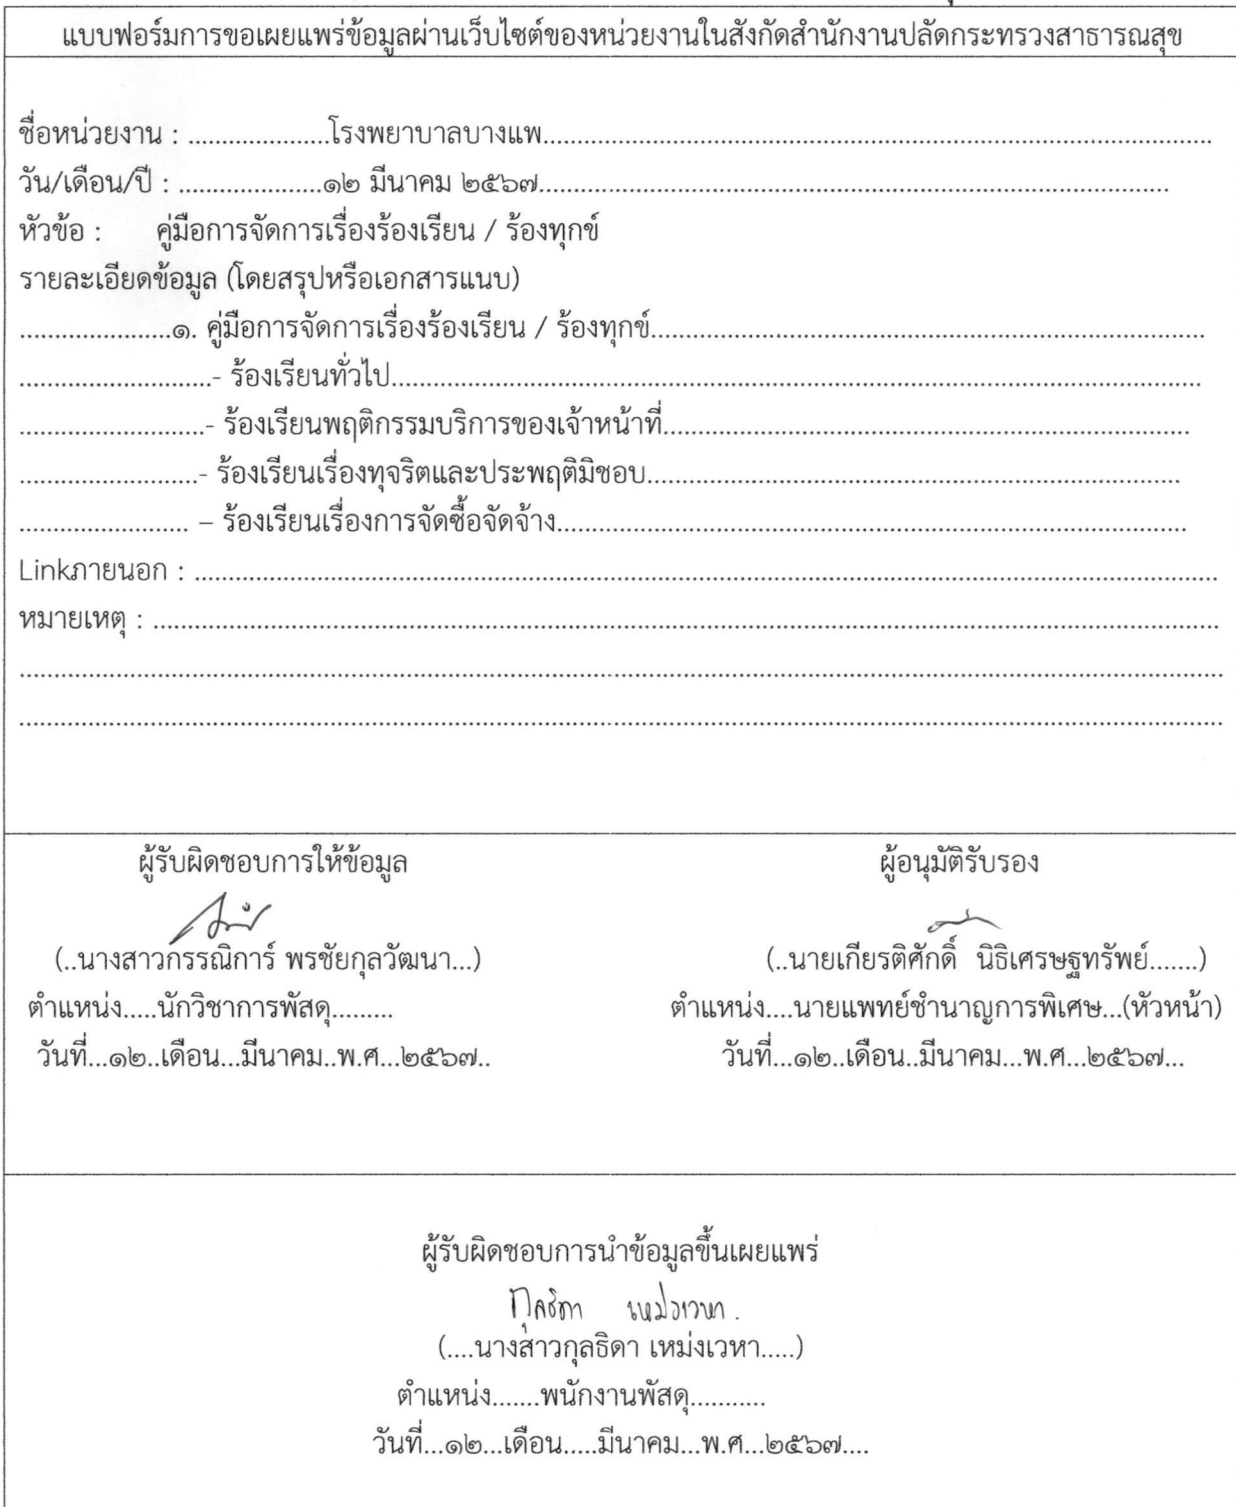 แบบฟอร์มการขอเผยแพร่ข้อมูลผ่านเว็บไซต์ของหน่วยงานในสังกัดสำนักงานปลัดกระทรวงสาธารณสุข
ชื่อหน่วยงาน : .....................โรงพยาบาลบางแพ....................................................................................................
วัน/เดือน/ปี : .....................๑๒ มีนาคม ๒๕๖๗..............................................................................................
หัวข้อ : คู่มือการจัดการเรื่องร้องเรียน / ร้องทุกข์
รายละเอียดข้อมูล (โดยสรุปหรือเอกสารแนบ)
......................๑. คู่มือการจัดการเรื่องร้องเรียน / ร้องทุกข์...................................................................................
............................- ร้องเรียนทั่วไป.........................................................................................................................
...........................- ร้องเรียนพฤติกรรมบริการของเจ้าหน้าที่...............................................................................
..........................- ร้องเรียนเรื่องทุจริตและประพฤติมิชอบ................................................................................
......................... – ร้องเรียนเรื่องการจัดซื้อจัดจ้าง..............................................................................................
Linkภายนอก : .........................................................................................................................................................
หมายเหตุ : ................................................................................................................................................................
....................................................................................................................................................................................
....................................................................................................................................................................................
ผู้รับผิดชอบการให้ข้อมูล ผู้อนุมัติรับรอง
(..นางสาวกรรณิการ์ พรชัยกุลวัฒนา...) (..นายเกียรติศักดิ์ นิธิเศรษฐทรัพย์.......)
ตำแหน่ง.....นักวิชาการพัสดุ......... ตำแหน่ง....นายแพทย์ชำนาญการพิเศษ...(หัวหน้า)
วันที่...๑๒..เดือน...มีนาคม..พ.ศ...๒๕๖๗.. วันที่...๑๒..เดือน..มีนาคม...พ.ศ...๒๕๖๗...
ผู้รับผิดชอบการนำข้อมูลขึ้นเผยแพร่
กุลธิดา เหม่งเวหา.
(....นางสาวกุลธิดา เหม่งเวหา.....)
ตำแหน่ง.......พนักงานพัสดุ...........
วันที่...๑๒...เดือน.....มีนาคม...พ.ศ...๒๕๖๗....